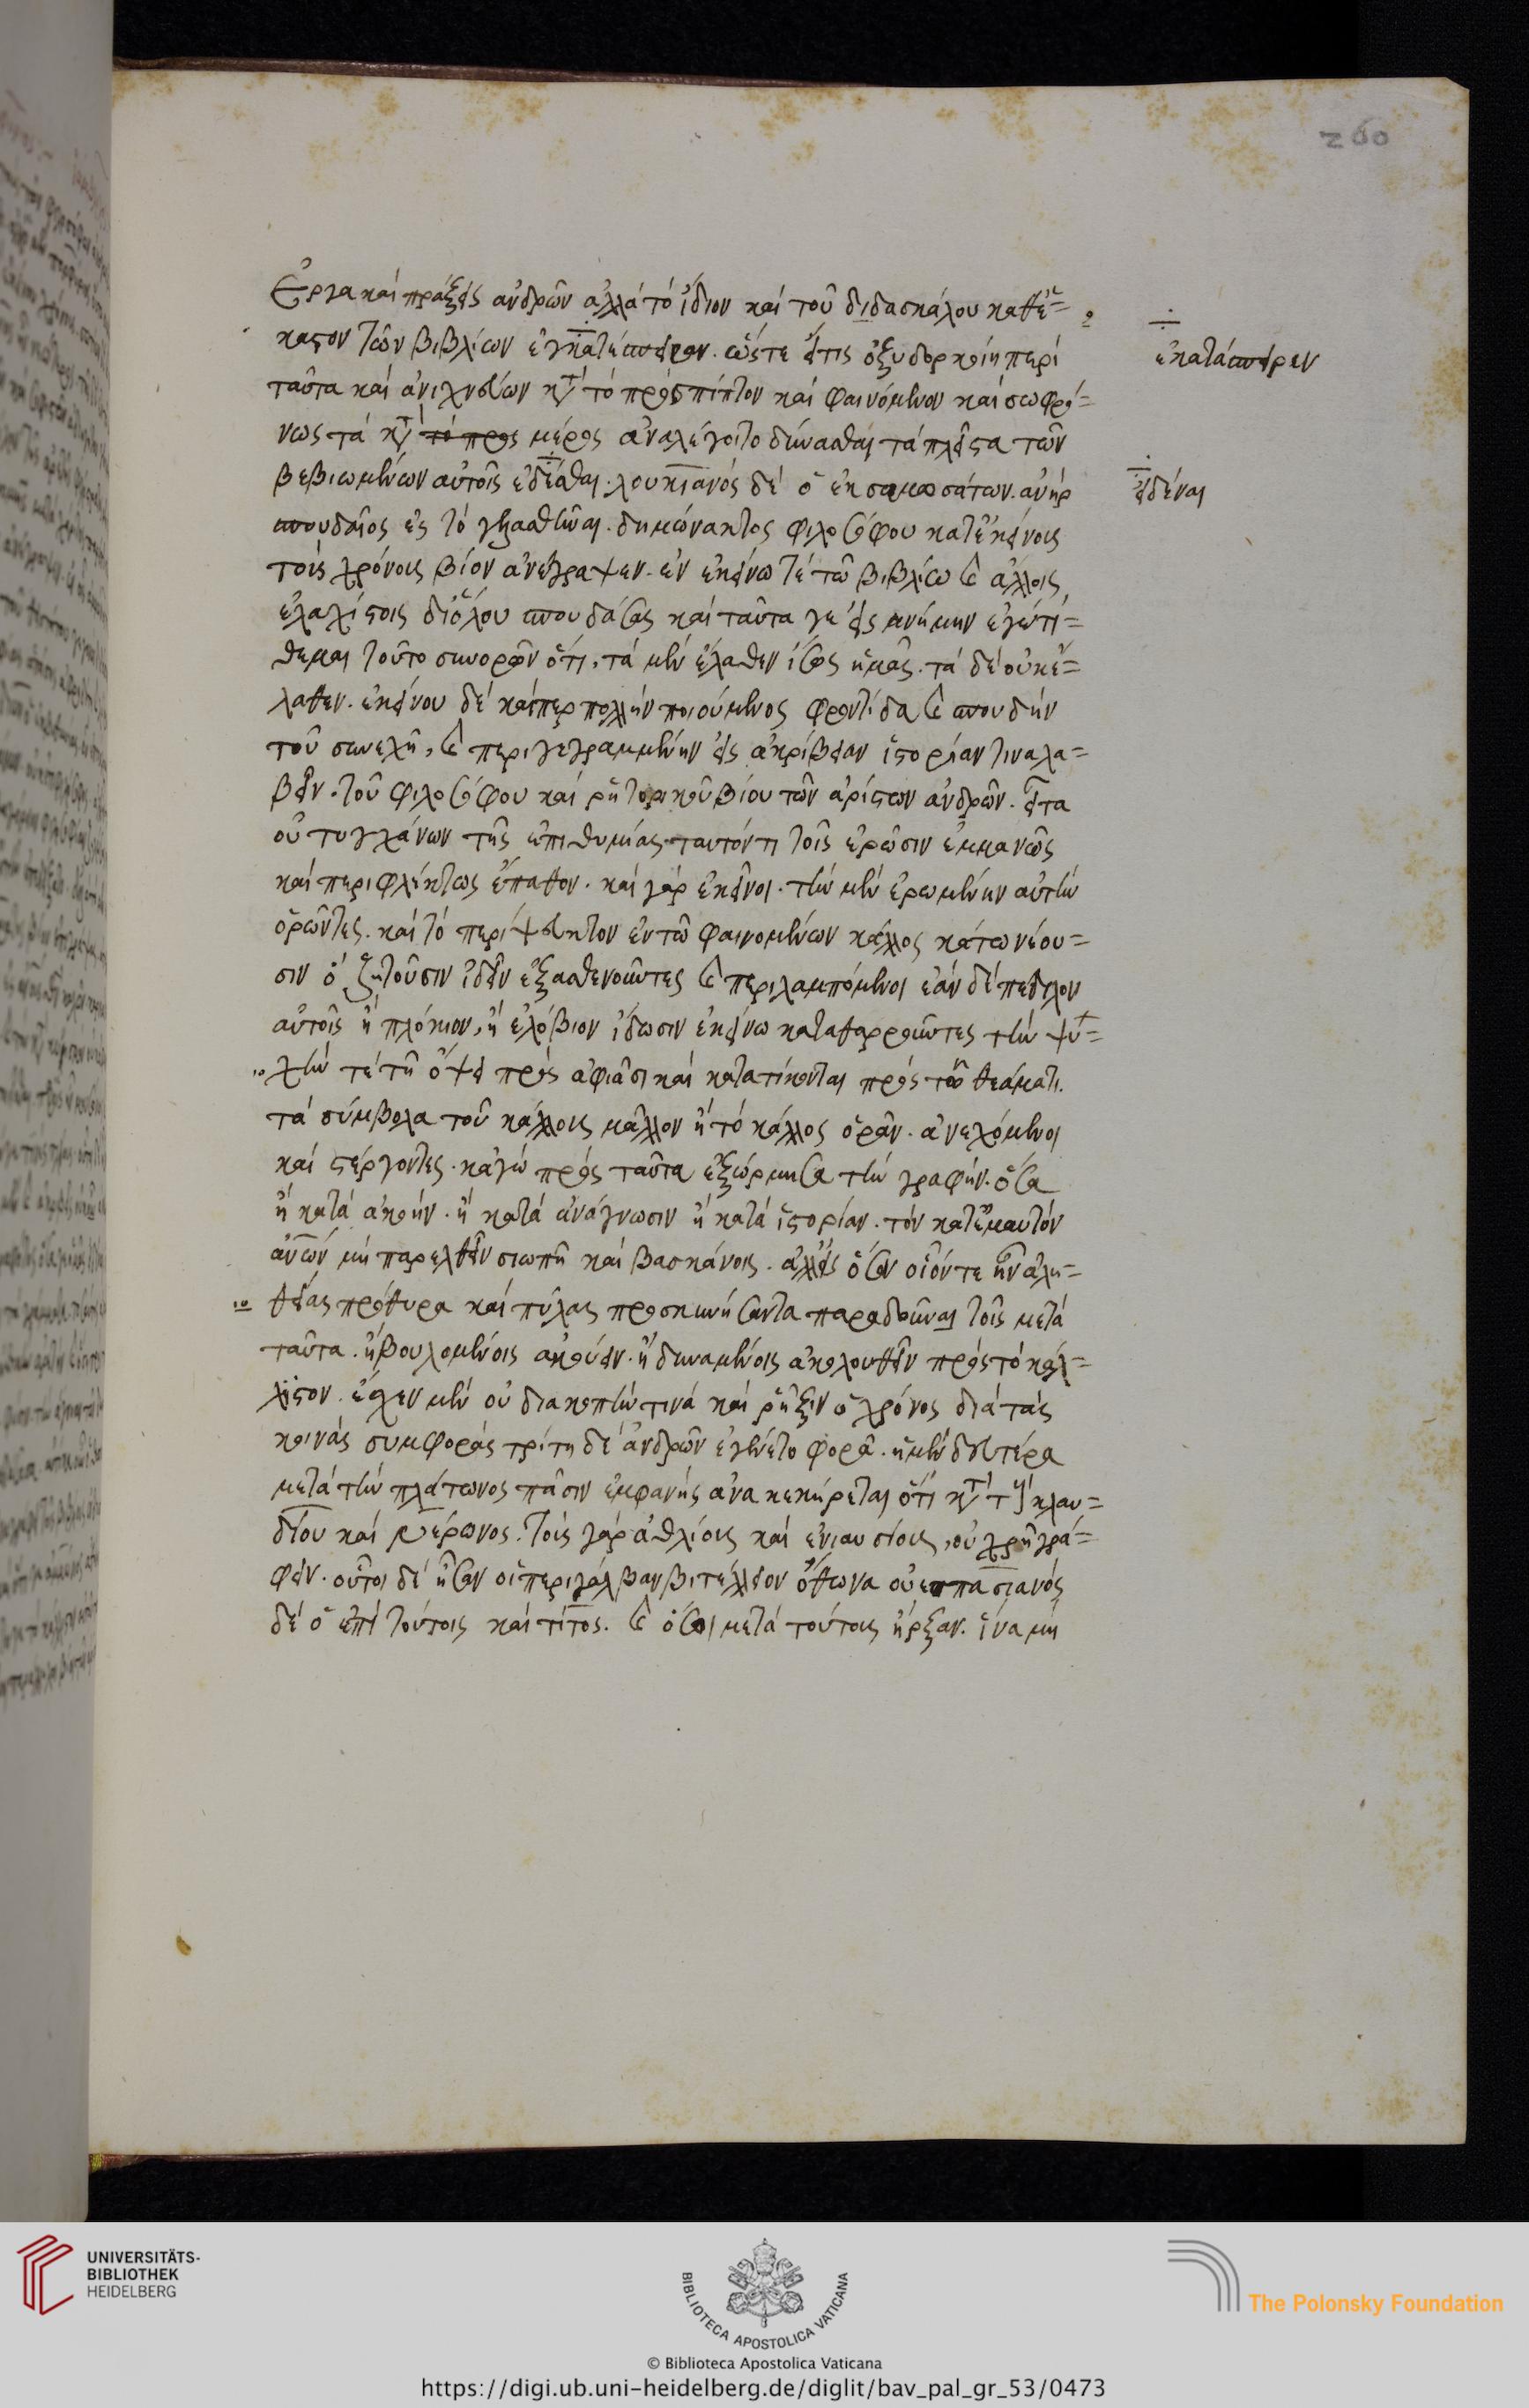 260
Ἔργα καὶ πράξεις ἀνδρῶν ἀλλὰ τὸ ἴδιον καὶ τοῦ διδασκάλου καθ' ἕ=
καστον τῶν βιβλίων ἐγκατέσπειρον. ὥστε εἴ τις ὀξυδορκοίη περὶ
ταῦτα καὶ ἀνιχνεύων κατὰ τὸ πρόσπίπτον καὶ φαινόμενον καὶ σωφρό=
νως τὰ κατὰ τὸ προς μέρος ἀναλέγοιτο δύνασθαι τὰ πλεῖστα τῶν
βεβιωμένων αὐτοῖς εδέσθαι. λουκιανὸς δὲ ὁ ἐκ σαμοσάτων. ἀνὴρ
σπουδαῖος ἐς τὸ γελασθῆναι. δημώνακτος φιλοσόφου κατ' ἐκείνους
τοὺς χρόνους βίον ἀνέγραψεν. ἐν ἐκείνω τὲ τῶ βιβλίω καὶ ἄλλοις
ἐλαχίστοις δι' ὅλου σπουδάσας καὶ ταῦτα γε εἰς μνήμην ἐγὼ τί=
θεμαι τοῦτο συνορῶν ὅτι, τὰ μὲν ἔλαθεν ἴσως ἡμᾶς. τὰ δὲ οὐκ ἔ=
λαθεν. ἐκείνου δὲ καίπερ πολλὴν ποιούμενος φροντίδα καὶ σπουδὴν
τοῦ συνεχῆ, καὶ περιγεγραμμένην εἰς ἀκρίβειαν ἱστορίαν τινα λα=
βεῖν. τοῦ φιλοσόφου καὶ ῥητορικοῦ βίου τῶν ἀρίστων ἀνδρῶν. εἶτα
οὐ τυγχάνων τῆς ἐπιθυμίας ταυτόν τι τοῖς ἐρῶσιν ἐμμανῶς
καὶ περιφλέκτως ἔπαθον. καὶ γὰρ ἐκεῖνοι. τὴν μὲν ἐρωμένην αὐτὴν
ὁρῶντες. καὶ τὸ περιψεύκτον ἐν τῶ φαινομένων κάλλος κάτω νέου=
σιν ὁ ζητοῦσιν ἰδεῖν ἐξασθενοῦντες καὶ περιλαμπόμενοι ἐὰν δὲ πέδιλον
αὐτοῖς ἢ πλόκιον, ἢ ἐλόβιον ἴδωσιν ἐκείνω καταθαρροῦντες τὴν ψυ=
χὴν τὲ τῆ ὄψει πρὸς ἀφιᾶσι καὶ κατατίκονται πρὸς τῶ θεάματι.
τὰ σύμβολα τοῦ κάλλους μᾶλλον ἢ τὸ κάλλος ὁρᾶν. ἀνεχόμενοι
καὶ στέργοντες. κἀγὼ πρὸς ταῦτα ἐξώρμησα τὴν γραφήν. ὅσα
ἢ κατὰ ἀκοήν. ἢ κατὰ ἀνάγνωσιν ἢ κατὰ ἱστορίαν. τὸν κατ' ἐμαυτόν
ἀνων μὴ παρελθεῖν σιωπῆ καὶ βασκάνοις. ἀλλ' εἰς ὅσον οἷόν τε ἦν ἀλη=
θείας πρόθυρα καὶ πύλας προσκυνήσαντα παραδοῦναι τοῖς μετὰ
ταῦτα. ἢ βουλομένοις ἀκούειν. ἢ δυναμένοις ἀκολουθεῖν πρὸς τὸ κάλ=
λιστον. ἔσχεν μὲν οὐ διακοπήν τινὰ καὶ ῥῆξιν ὁ χρόνος διὰ τὰς
κοινὰς συμφορὰς τρίτη δὲ ἀνδρῶν ἐγένετο φορά. ἡ μὲν δευτέρα
μετὰ τὴν πλάτωνος πᾶσιν ἐμφανὴς ἀνακεκήρεται ὅτι κατὰ τὴν κλαυ=
δίου καὶ νέρωνος. τοὺς γὰρ ἀθλίους καὶ ἐνιαυσίους, οὐ χρὴ γρά=
φειν. οὗτοι δὲ ἦσαν οἱ περὶ γάλβαν βιτέλλειον ὄθωνα οὐεσπασιανὸς
δὲ ὁ ἐπὶ τούτοις καὶ τίτος. καὶ ὅσοι μετὰ τούτους ἦρξαν. ἵνα μὴ
ἐκατάσπειρεν
εἰδέναι
UNIVERSITÄTS-
BIBLIOTHEK
HEIDELBERG
BIBLIOTECA APOSTOLICA VATICANA
© Biblioteca Apostolica Vaticana
The Polonsky Foundation
https://digi.ub.uni-heidelberg.de/diglit/bav_pal_gr_53/0473